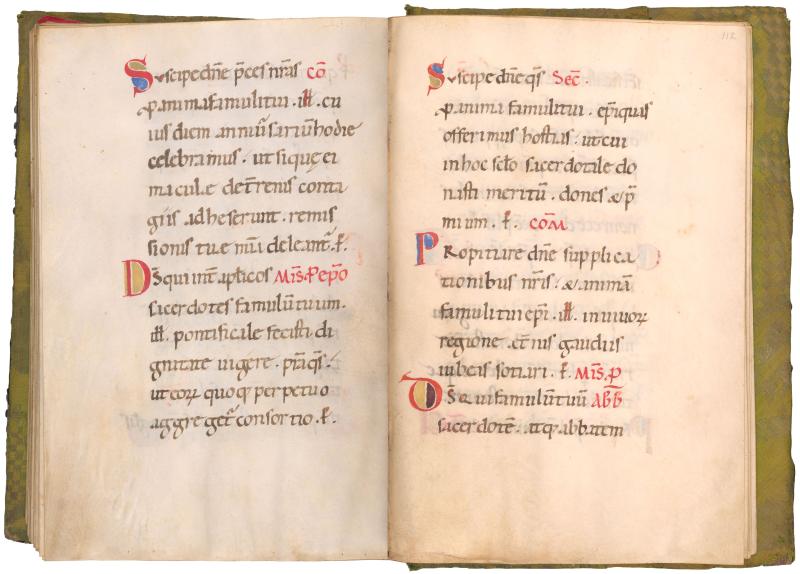 Suscipe dñe p̄ces nr̄as cō
p anima famuli tui · iłł · cu
ius diem anniũsariũ hodie
celebramus · ut siquę ei
maculæ de t̄renis conta
giis adheserunt · remis
sionis tuæ mĩa deleant̃ · ꝑ.
Dš qui int̃ ap̄licos Mĩš ꝑ ep̄o
sacerdotes famulũ tuum ·
iłł · pontificale fecisti di
gnitate uigere · p̄ta qš ·
ut eoꝝ quoq; perpetuo
aggreget̃ consortio · ꝑ.
112
Suscipe dñe qš Sec̄
p anima famuli tui · ep̄i quas
offerimus hostias · ut cui
in hoc sc̄lo sacerdotale do
nasti meritũ · dones & p̄
mium · ꝑ. com̄
Propitiare dñe supplica
tionibus nr̄is · & animã
famuli tui ep̄i · iłł · in uiuoꝝ
regione · et̃nis gaudiis
iubeas sotiari · ꝑ. Mĩš · ꝑ
Dš qui famulũ tuũ abb̄
sacerdotẽ · atq; abbatem